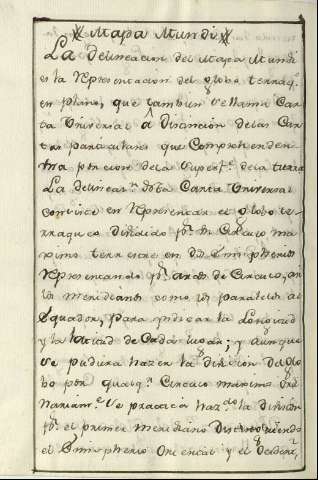 Mapa Mundi
La delineacion del Mapa Mundi
es la representacion del globo terraq.º
en plano, que tambien se llama Car
ta Universal â Distincion de las Car
tas particulares que Comprehenden
una porcion de la Superf.e de la tierra
La delineac.n de la Carta Universal
consiste en representar el globo te-
rraqueo dividido p.r un Circulo ma
ximo terrestre en dos Emispherios
representando p.r arcos de Circulo, an
los meridianos como los paralelos al
Equador, para yndicar la Longitud
y la latitud de Cada lugar; y aunque
se pudiera hazer la division del Glo
bo por qualq.r Circulo maximo Ordi
nariam.e se practica haz.do la division
p.r el primer Meridiano Distinguiendo
el Emispherio Oriental y el Occident.l